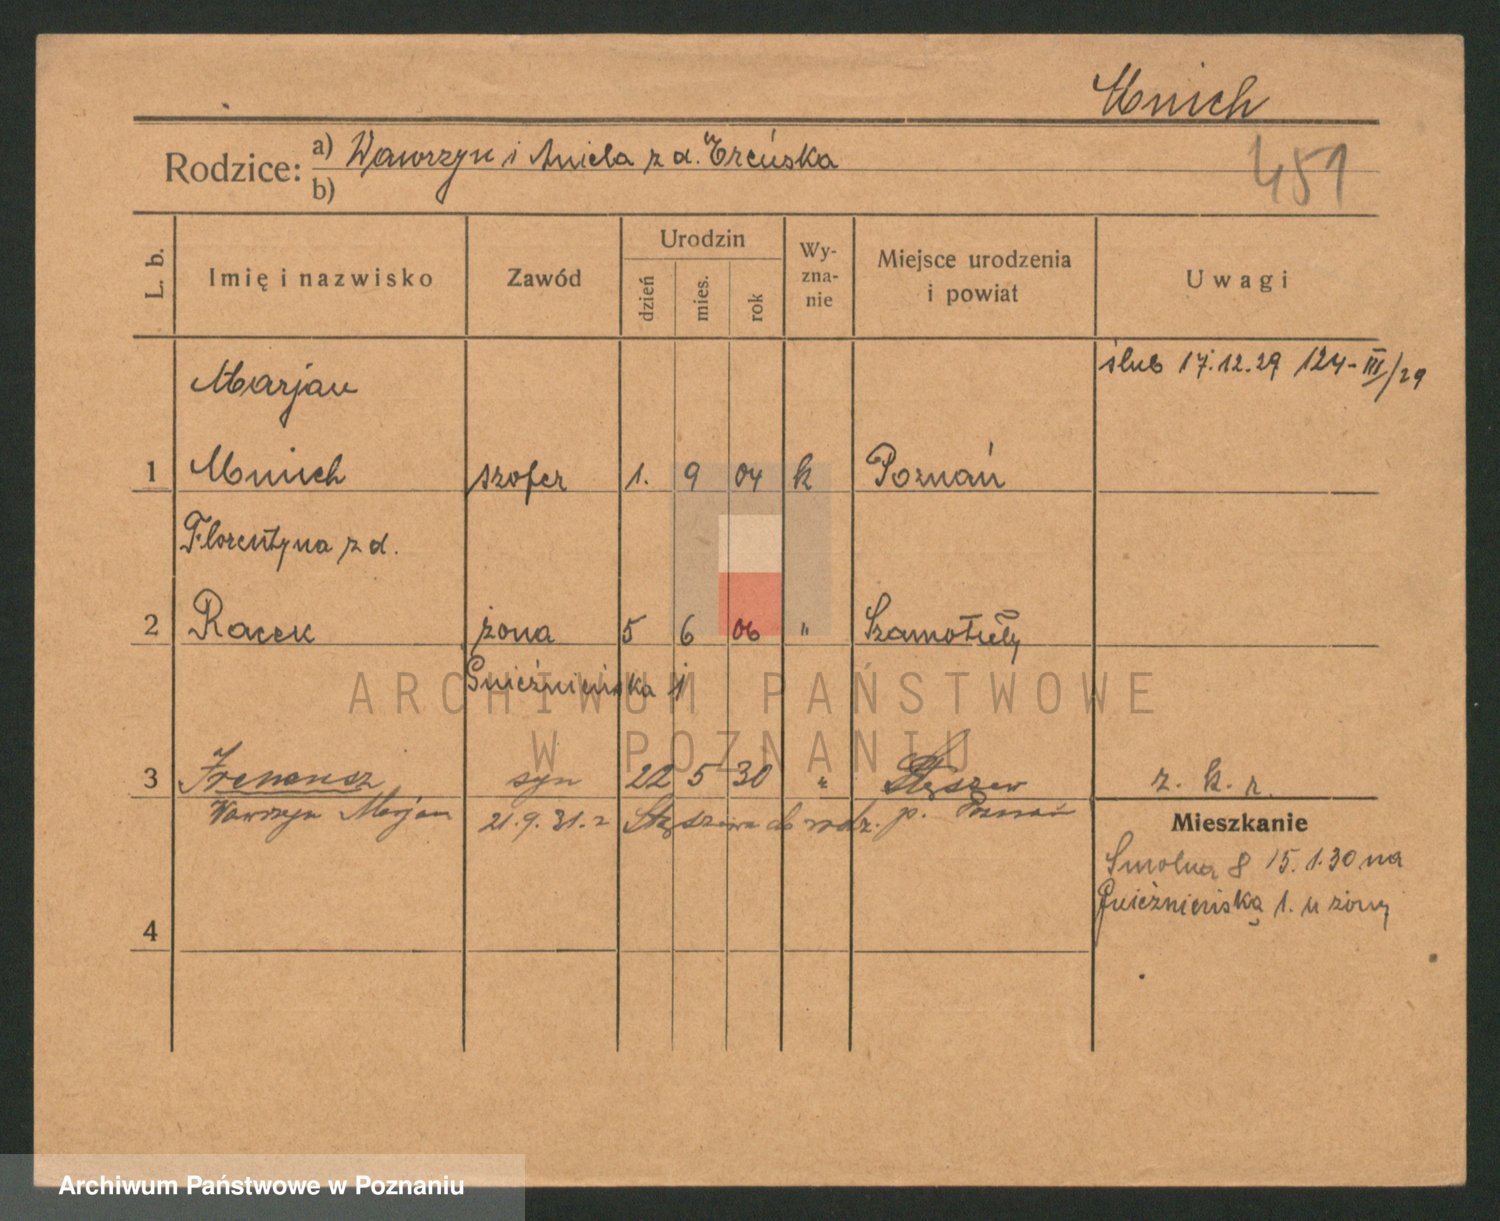 Mnich
Rodzice: a) Wawrzyn i Aniela z d. Treńska
b)
451
L. b.
Imię i nazwisko
Zawód
Urodzin
dzień
mies.
rok
Wy-
zna-
nie
Miejsce urodzenia
i powiat
Uwagi
Marjan
ślub 17.12.29 124-III/29
1 Mnich szofer 1. 9 04 k Poznań
Florentyna z d.
2 Racek żona 5 6 06 " Szamotuły
Gnieźnieńska 1
ARCHIWUM PAŃSTWOWE
W POZNANIU
3 Ireneusz syn 22 5 30 " Stęszew z. k. r.
Wawrzyn Marjan 21.9.31. z Stęszewa do rodz. p. Poznań
Mieszkanie
Smolna 8 15.1.30 na
Gnieźnieńską 1. u żony
4
Archiwum Państwowe w Poznaniu